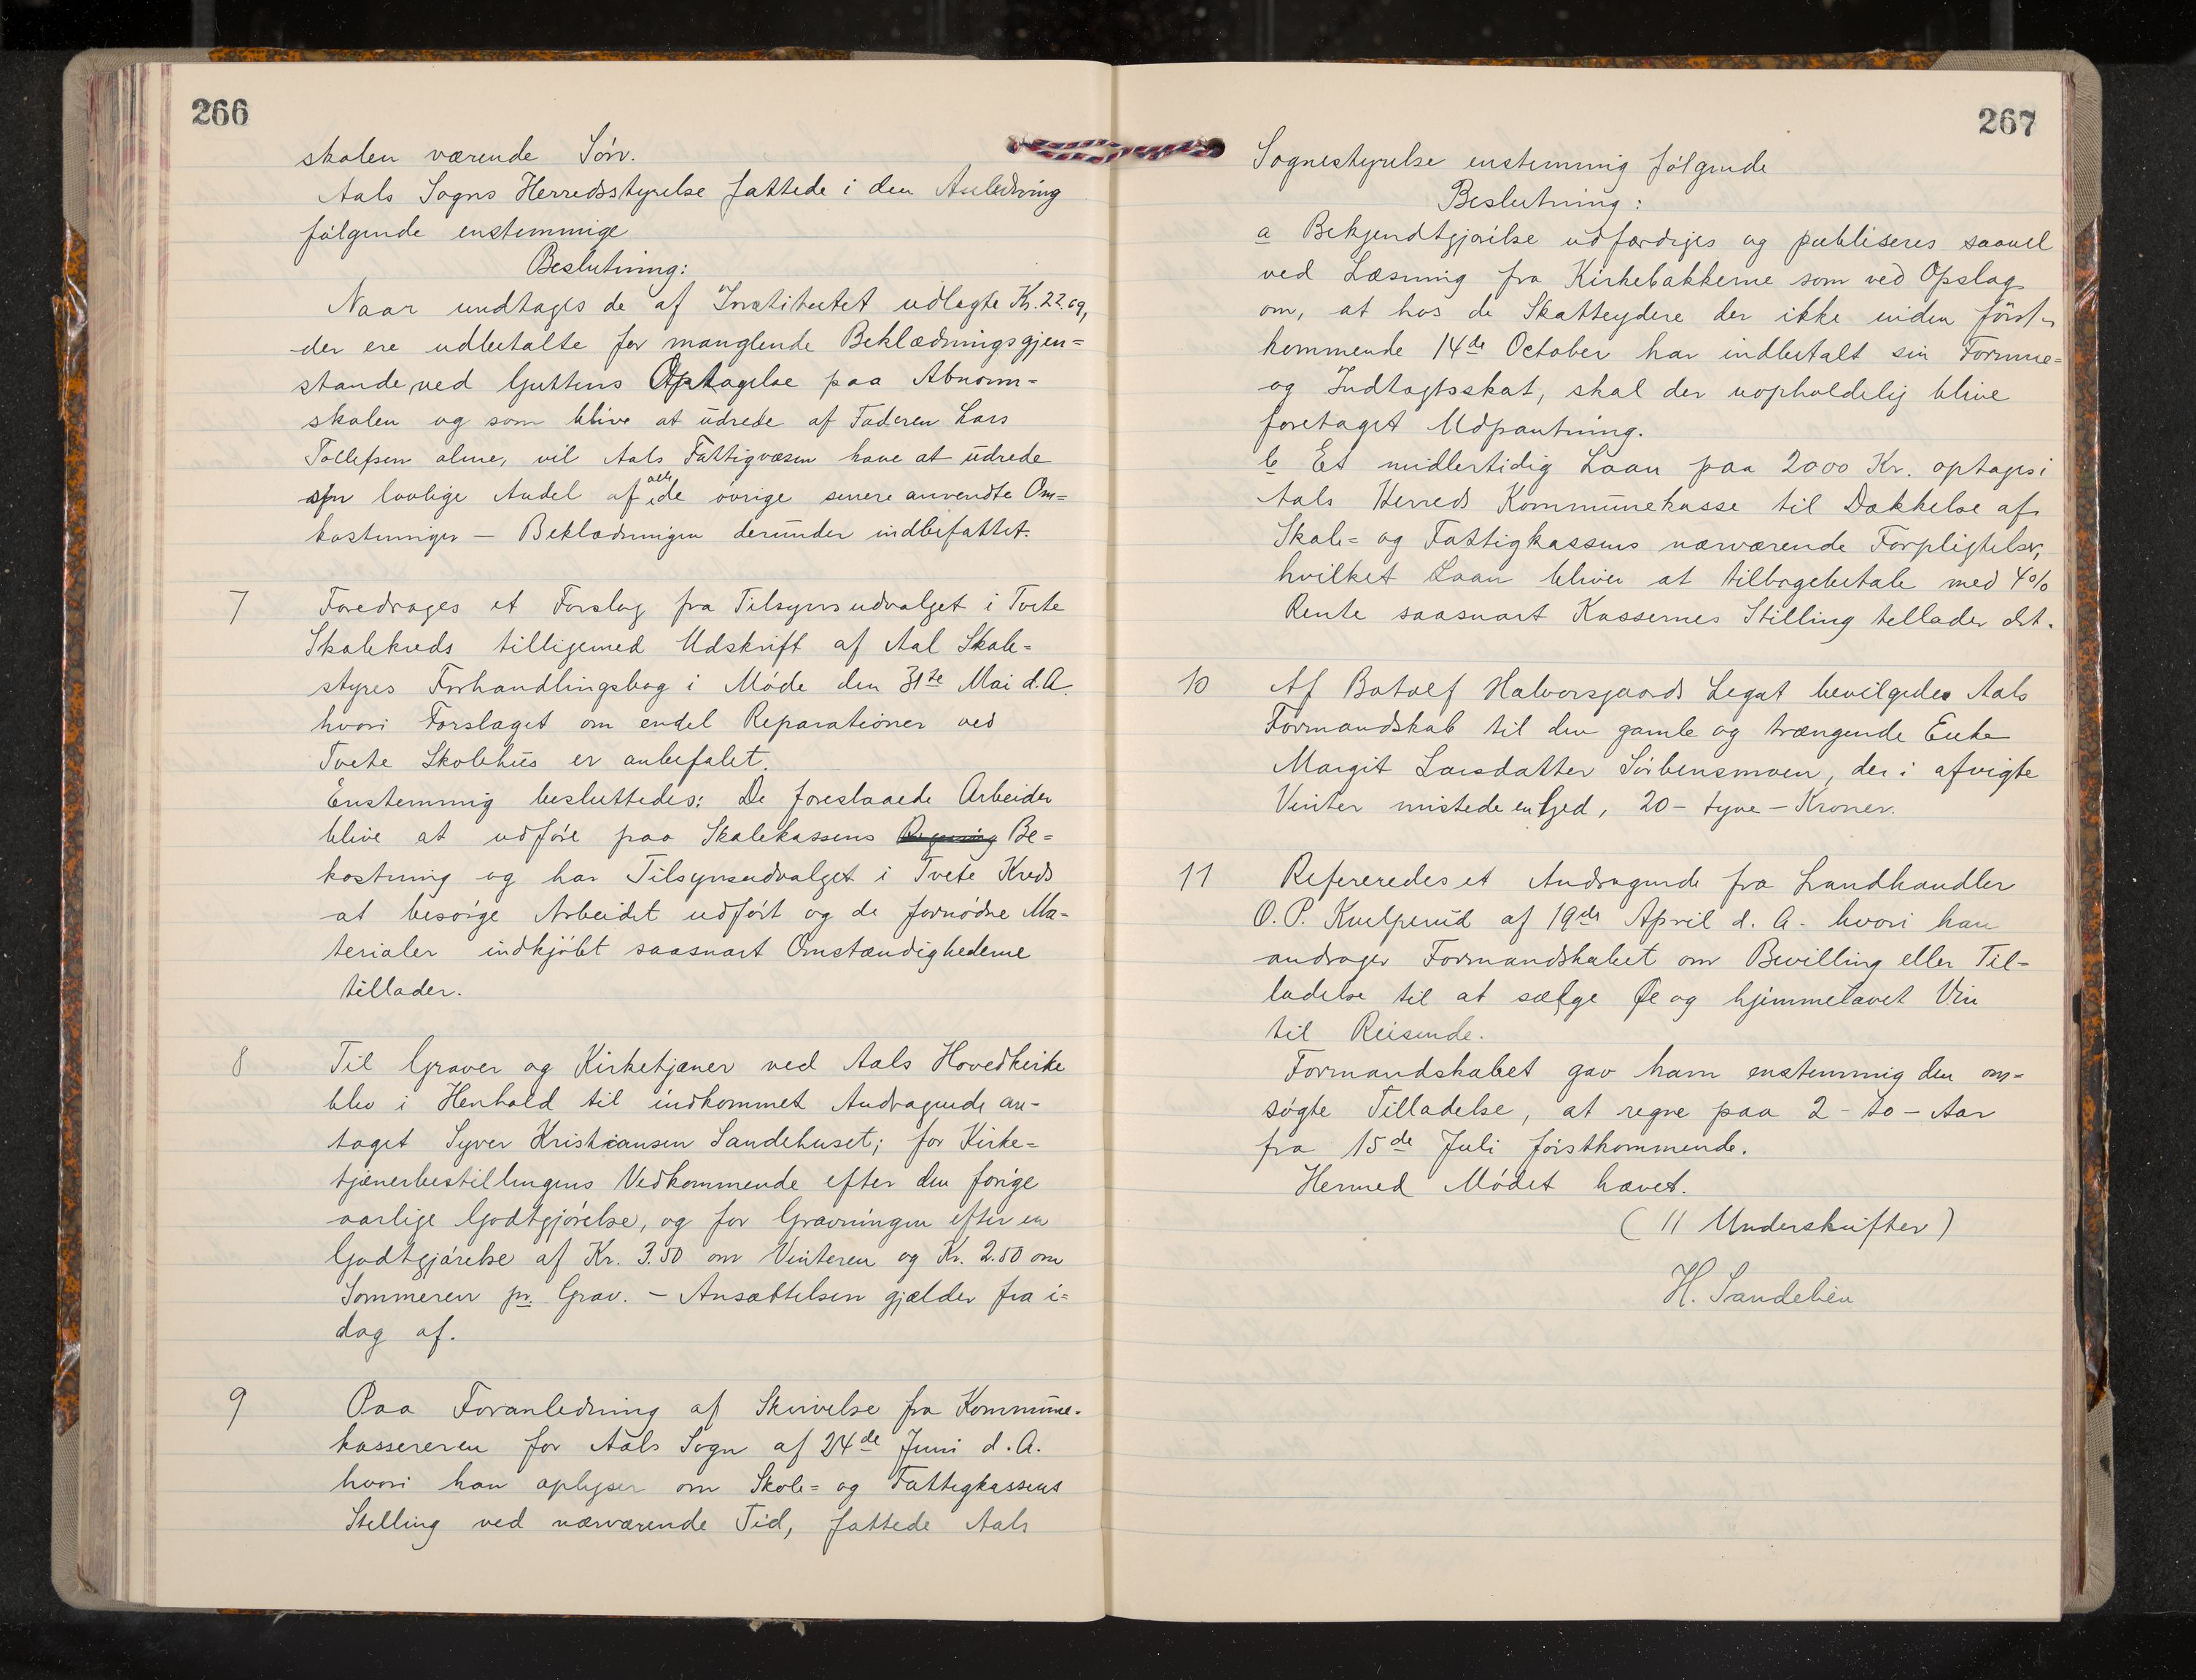 266
skolen værende Søn.
Aals Sogns Herredsstyrelse fattede i den Anledning
følgende enstemmige
Beslutning:
Naar undtages de af Institutet udlagte Kr. 22.69,
der ere udbetalte for manglende Beklædningsgjen=
stande, ved Guttens Optagelse paa Abnorm=
skolen og som blive at udrede af Faderen Lars
Tollefsen alene, vil Aals Fattigvæsen have at udrede
sin lovlige Andel af alle de øvrige senere anvendte Om=
kostninger — Beklædningen derunder indbefattet.
7 Foredrages et Forslag fra Tilsynsudvalget i Tvete
Skolekreds tilligemed Udskrift af Aal Skole=
styres Forhandlingsbog i Møde den 31te Mai d. A.
hvori Forslaget om endel Reparationer ved
Tvete Skolehus er anbefalet.
Enstemmig besluttedes: De foreslaaede Arbeider
blive at udføre paa Skolekassens Regning Be=
kostning og har Tilsynsudvalget i Tvete Kreds
at besørge Arbeidet udført og de fornødne Ma-
terialer indkjøbt saasnart Omstændighederne
tillader.
8 Til Graver og Kirketjener ved Aals Hovedkirke
blev i Henhold til indkommet Andragende an-
taget Syver Kristiansen Sandehuset; for Kirke=
tjenerbestillingens Vedkommende efter den forige
aarlige Godtgjørelse, og for Gravningen efter en
Godtgjørelse af Kr. 3.50 om Vinteren og Kr. 2.50 om
Sommeren pr. Grav. — Ansættelsen gjælder fra i=
dag af.
9 Paa Foranledning af Skrivelse fra Kommune-
kassereren for Aals Sogn af 24de Juni d. A.
hvori han oplyser om Skole= og Fattigkassens
Stilling ved nærværende Tid, fattede Aals
267
Sognestyrelse enstemmig følgende
Beslutning:
a Bekjendtgjørelse udfærdiges og publiseres saavel
ved Læsning fra Kirkebakkerne som ved Opslag
om, at hos de Skatteydere der ikke inden først-
kommende 14de October har indbetalt sin Formue=
og Indtægtsskat, skal der uopholdelig blive
foretaget Udpantning.
b Et midlertidig Laan paa 2000 Kr. optages i
Aals Herreds Kommunekasse til Dækkelse af
Skole= og Fattigkassens nærværende Forpligtelser,
hvilket Laan bliver at tilbagebetale med 4%
Rente saasnart Kassernes Stilling tellader det.
10 Af Botolf Halvorsgaards Legat bevilgedes Aals
Formandskab til den gamle og trængende Enke
Margit Larsdatter Sørbensmoen, der i afvigte
Vinter mistede en Gjed, 20 - tyve - Kroner.
11 Refereredes et Andragende fra Landhandler
O. P. Kvelprud af 19de April d. A. hvori han
andrager Formandskabet om Bevilling eller Til-
ladelse til at sælge Øl og hjemmelavet Vin
til Reisende.
Formandskabet gav ham enstemmig den om=
søgte Tilladelse, at regne paa 2 - to - Aar
fra 15de Juli førstkommende.
Hermed Mødet hævet.
( 11 Underskrifter )
H. Sandelien